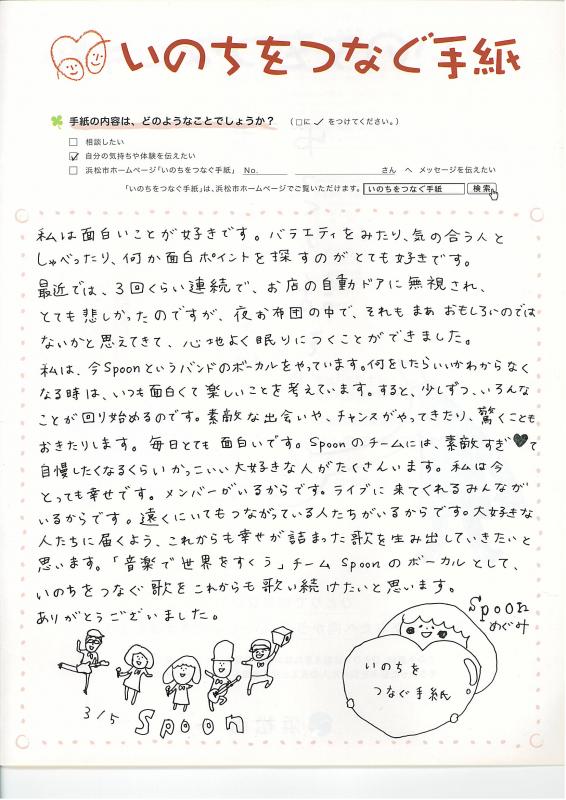 いのちをつなぐ手紙
手紙の内容は、どのようなことでしょうか？ （□に✓をつけてください。）
□ 相談したい
☑ 自分の気持ちや体験を伝えたい
□ 浜松市ホームページ「いのちをつなぐ手紙」 No. さん へ メッセージを伝えたい
「いのちをつなぐ手紙」は、浜松市ホームページでご覧いただけます。 いのちをつなぐ手紙 検索
私は面白いことが好きです。バラエティをみたり、気の合う人と
しゃべったり、何か面白ポイントを探すのがとても好きです。
最近では、3回くらい連続で、お店の自動ドアに無視され、
とても悲しかったのですが、夜お布団の中で、それもまあおもしろいのでは
ないかと思えてきて、心地よく眠りにつくことができました。
私は、今Spoonというバンドのボーカルをやっています。何をしたらいいかわからなく
なる時は、いつも面白くて楽しいことを考えています。すると、少しずつ、いろんな
ことが回り始めるのです。素敵な出会いや、チャンスがやってきたり、驚くことも
おきたりします。毎日とても面白いです。Spoonのチームには、素敵すぎ♥て
自慢したくなるくらいかっこいい大好きな人がたくさんいます。私は今
とっても幸せです。メンバーがいるからです。ライブに来てくれるみんなが
いるからです。遠くにいてもつながっている人たちがいるからです。大好きな
人たちに届くよう、これからも幸せが詰まった歌を生み出していきたいと
思います。「音楽で世界をすくう」チームSpoonのボーカルとして、
いのちをつなぐ歌をこれからも歌い続けたいと思います。
ありがとうございました。
Spoon
めぐみ
いのちを
つなぐ手紙
3/5 Spoon